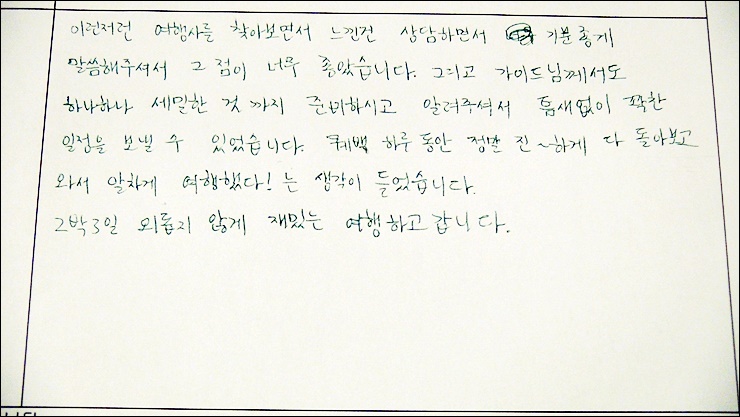 이런저런 여행사를 찾아보면서 느낀건 상담하면서 기분좋게
말씀해주셔서 그 점이 너무 좋았습니다. 그리고 가이드님께서도
하나하나 세밀한 것 까지 준비하시고 알려주셔서 틈새없이 꽉찬
일정을 보낼 수 있었습니다. 퀘백 하루 동안 정말 진~하게 다 돌아보고
와서 알차게 여행했다! 는 생각이 들었습니다.
2박3일 외롭지 않게 재밌는 여행하고 갑니다.